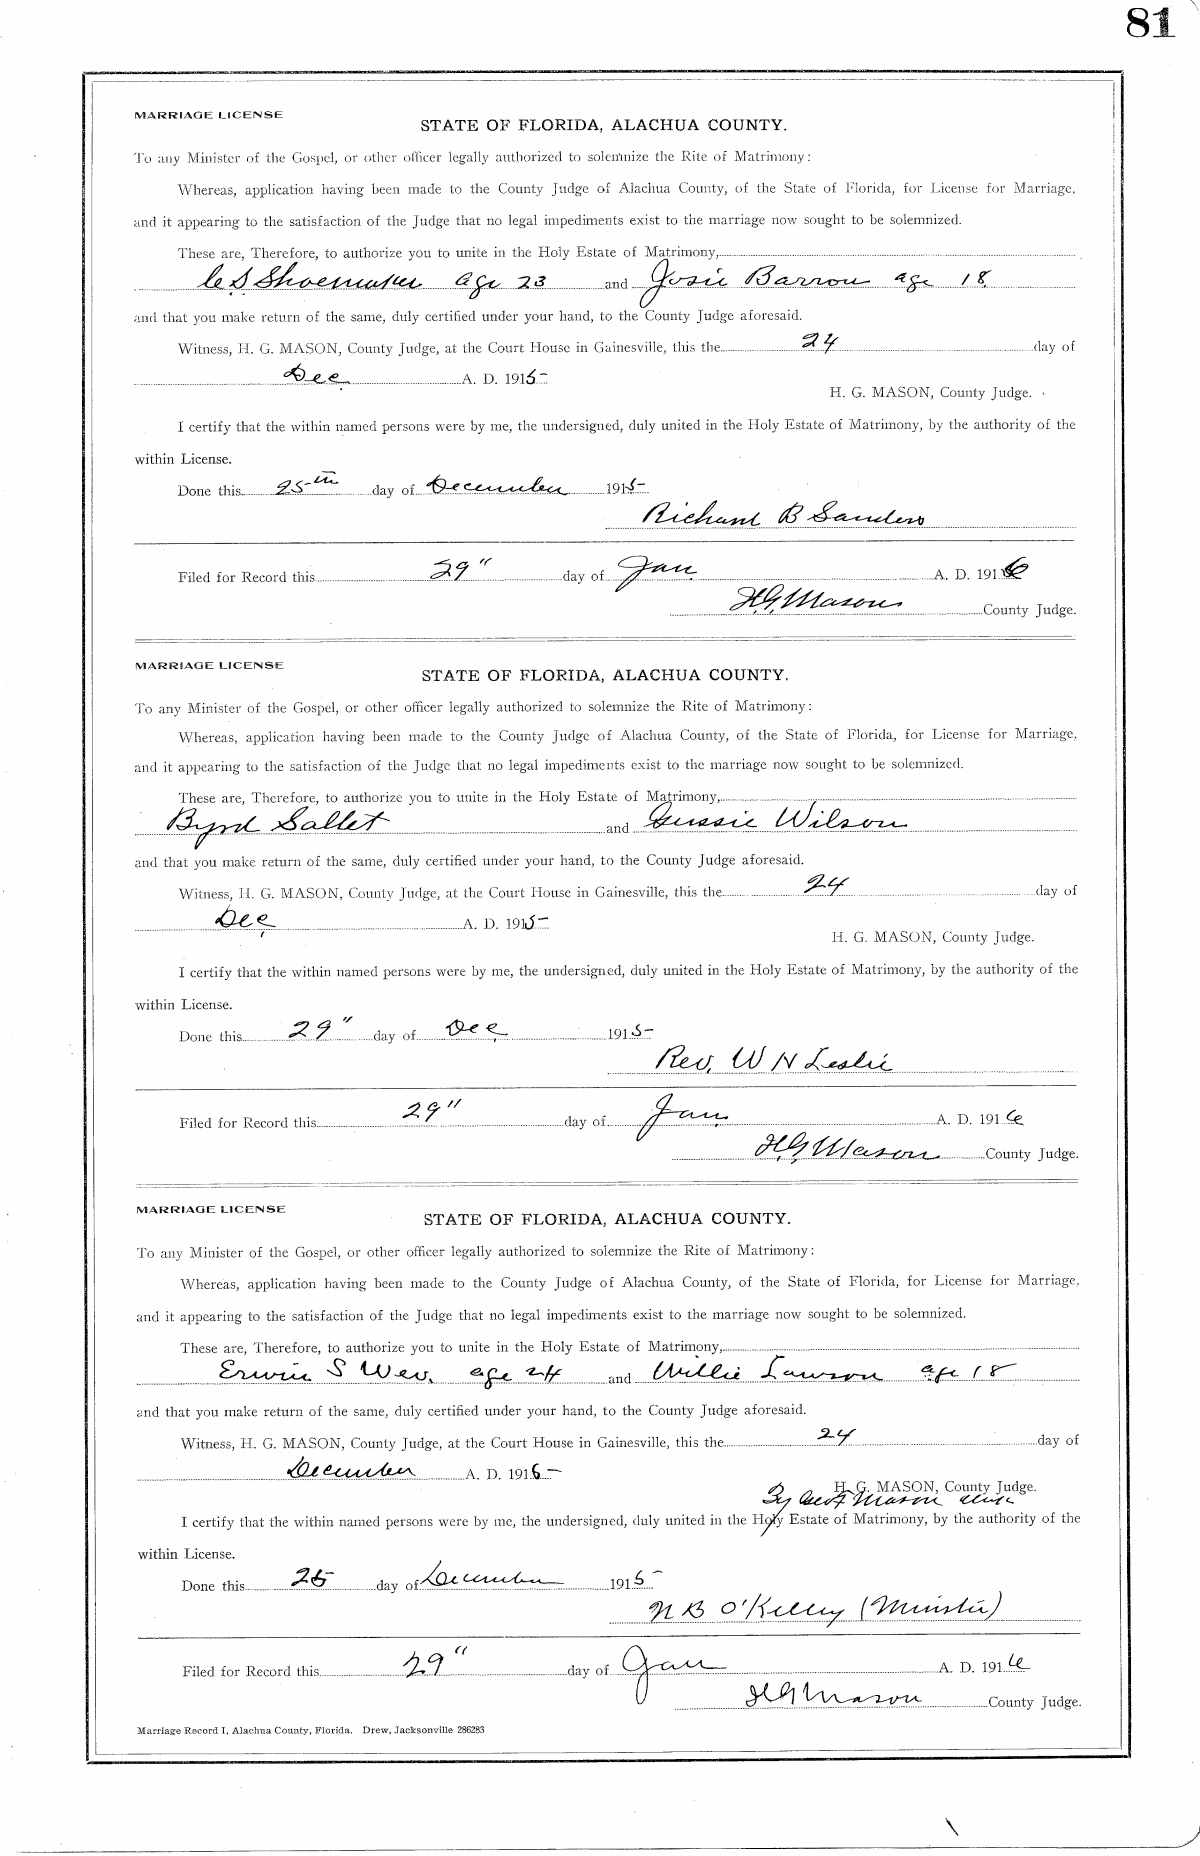 81
MARRIAGE LICENSE
STATE OF FLORIDA, ALACHUA COUNTY.
To any Minister of the Gospel, or other officer legally authorized to solemnize the Rite of Matrimony:
Whereas, application having been made to the County Judge of Alachua County, of the State of Florida, for License for Marriage,
and it appearing to the satisfaction of the Judge that no legal impediments exist to the marriage now sought to be solemnized.
These are, Therefore, to authorize you to unite in the Holy Estate of Matrimony,
C S Shoemaker age 23 and Josie Barron age 18
and that you make return of the same, duly certified under your hand, to the County Judge aforesaid.
Witness, H. G. MASON, County Judge, at the Court House in Gainesville, this the 24 day of
Dec A. D. 1915
H. G. MASON, County Judge.
I certify that the within named persons were by me, the undersigned, duly united in the Holy Estate of Matrimony, by the authority of the
within License.
Done this 25th day of December 1915
Richard B Sanders
Filed for Record this 29" day of Jan A. D. 1916
H.G. Mason County Judge.
MARRIAGE LICENSE
STATE OF FLORIDA, ALACHUA COUNTY.
To any Minister of the Gospel, or other officer legally authorized to solemnize the Rite of Matrimony:
Whereas, application having been made to the County Judge of Alachua County, of the State of Florida, for License for Marriage,
and it appearing to the satisfaction of the Judge that no legal impediments exist to the marriage now sought to be solemnized.
These are, Therefore, to authorize you to unite in the Holy Estate of Matrimony,
Byrd Sallet and Gussie Wilson
and that you make return of the same, duly certified under your hand, to the County Judge aforesaid.
Witness, H. G. MASON, County Judge, at the Court House in Gainesville, this the 24 day of
Dec, A. D. 1915
H. G. MASON, County Judge.
I certify that the within named persons were by me, the undersigned, duly united in the Holy Estate of Matrimony, by the authority of the
within License.
Done this 29" day of Dec, 1915
Rev. W N Leslie
Filed for Record this 29" day of Jan. A. D. 1916
H.G. Mason County Judge.
MARRIAGE LICENSE
STATE OF FLORIDA, ALACHUA COUNTY.
To any Minister of the Gospel, or other officer legally authorized to solemnize the Rite of Matrimony:
Whereas, application having been made to the County Judge of Alachua County, of the State of Florida, for License for Marriage,
and it appearing to the satisfaction of the Judge that no legal impediments exist to the marriage now sought to be solemnized.
These are, Therefore, to authorize you to unite in the Holy Estate of Matrimony,
Erwin S Wev. age 24 and Willie Lawson age 18
and that you make return of the same, duly certified under your hand, to the County Judge aforesaid.
Witness, H. G. MASON, County Judge, at the Court House in Gainesville, this the 24 day of
December A. D. 1915
H. G. MASON, County Judge.
By Mason
I certify that the within named persons were by me, the undersigned, duly united in the Holy Estate of Matrimony, by the authority of the
within License.
Done this 25 day of December 1915
N B O'Kelley (Minister)
Filed for Record this 29" day of Jan A. D. 1916
H G Mason County Judge.
Marriage Record I, Alachua County, Florida. Drew, Jacksonville 286283